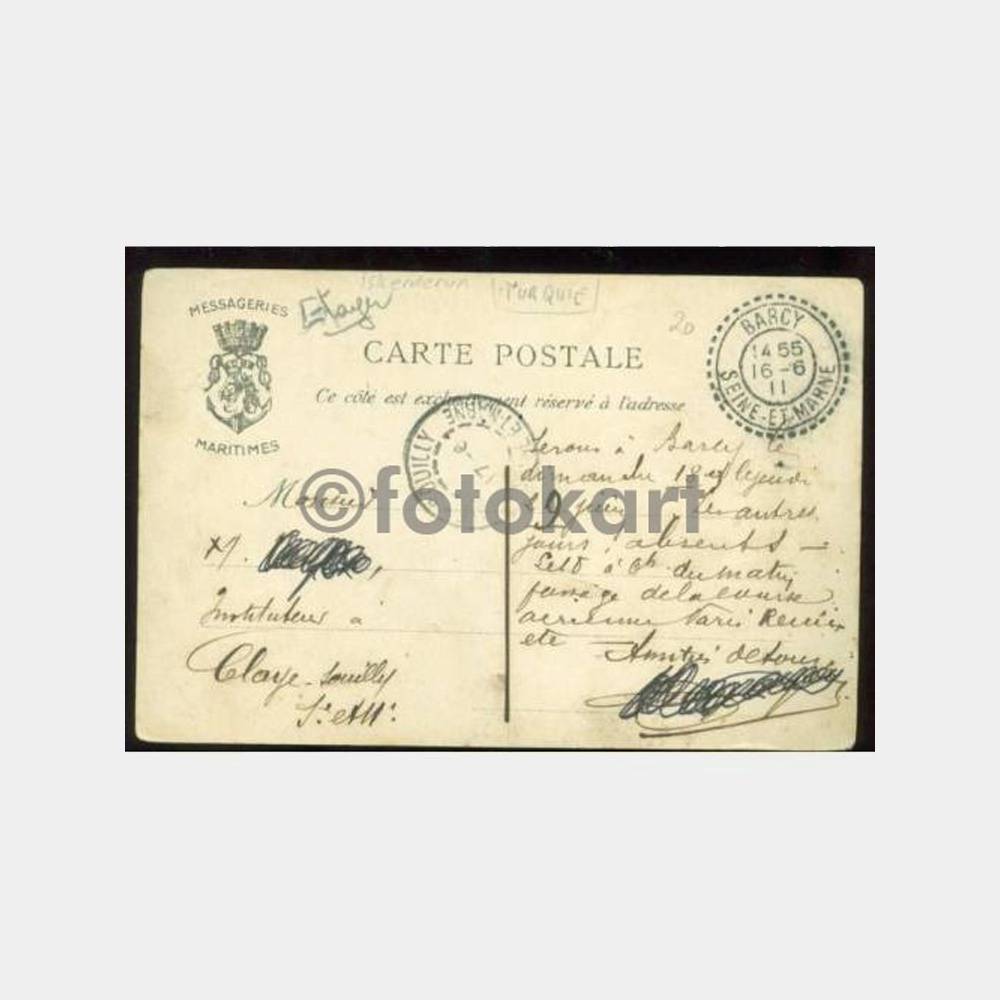 Iskenderun
TURQUIE
20
MESSAGERIES
MARITIMES
CARTE POSTALE
Ce côté est exclusivement réservé à l'adresse
BARCY
14 55
16 - 6
11
SEINE-ET-MARNE
OUILLY
ET-MARNE
©fotokart
Monsieur
M.
Instituteur à
Claye-Souilly
S. et M.
Serons à Barcy le
dimanche 18 et le jeudi
les autres
jours absents
Le 18 à 6h du matin
passage de la course
aérienne Paris
etc
Amitiés de tous